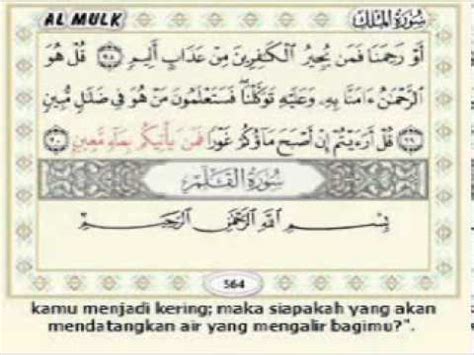 AL MULK سُورَةُ المُلْكِ
أَوْ رَحِمَنَا فَمَن يُجِيرُ الْكَٰفِرِينَ مِنْ عَذَابٍ أَلِيمٍ ٢٨ قُلْ هُوَ
الرَّحْمَٰنُ ءَامَنَّا بِهِۦ وَعَلَيْهِ تَوَكَّلْنَا ۖ فَسَتَعْلَمُونَ مَنْ هُوَ فِي ضَلَٰلٍ مُّبِينٍ
٢٩ قُلْ أَرَءَيْتُمْ إِنْ أَصْبَحَ مَآؤُكُمْ غَوْرًا فَمَن يَأْتِيكُم بِمَآءٍ مَّعِينٍ ٣٠
سُورَةُ القَلَمِ
بِسْمِ اللَّهِ الرَّحْمَٰنِ الرَّحِيمِ
564
kamu menjadi kering; maka siapakah yang akan
mendatangkan air yang mengalir bagimu?".